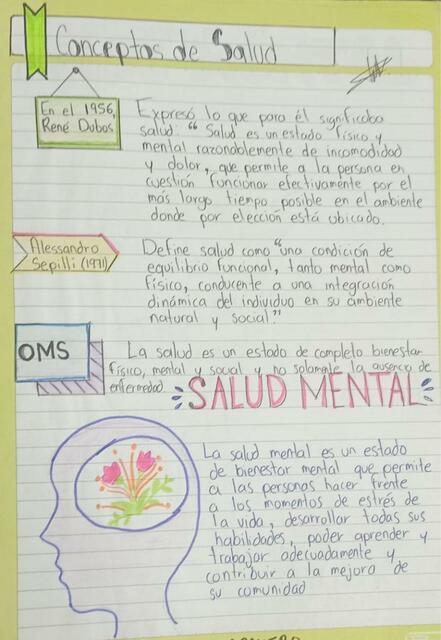 Conceptos de Salud
En el 1956,
René Dubos
Expresó lo que para él significaba
salud: "Salud es un estado físico y
mental razonablemente de incomodidad
y dolor, que permite a la persona en
cuestión funcionar efectivamente por el
más largo tiempo posible en el ambiente
donde por elección está ubicado.
Alessandro
Sepilli (1971)
Define salud como "una condición de
equilibrio funcional, tanto mental como
físico, conducente a una integración
dinámica del individuo en su ambiente
natural y social."
OMS
La salud es un estado de completo bienestar
físico, mental y social y no solamente la ausencia de
enfermedad.
SALUD MENTAL
La salud mental es un estado
de bienestar mental que permite
a las personas hacer frente
a los momentos de estrés de
la vida, desarrollar todas sus
habilidades, poder aprender y
trabajar adecuadamente y
contribuir a la mejora de
su comunidad